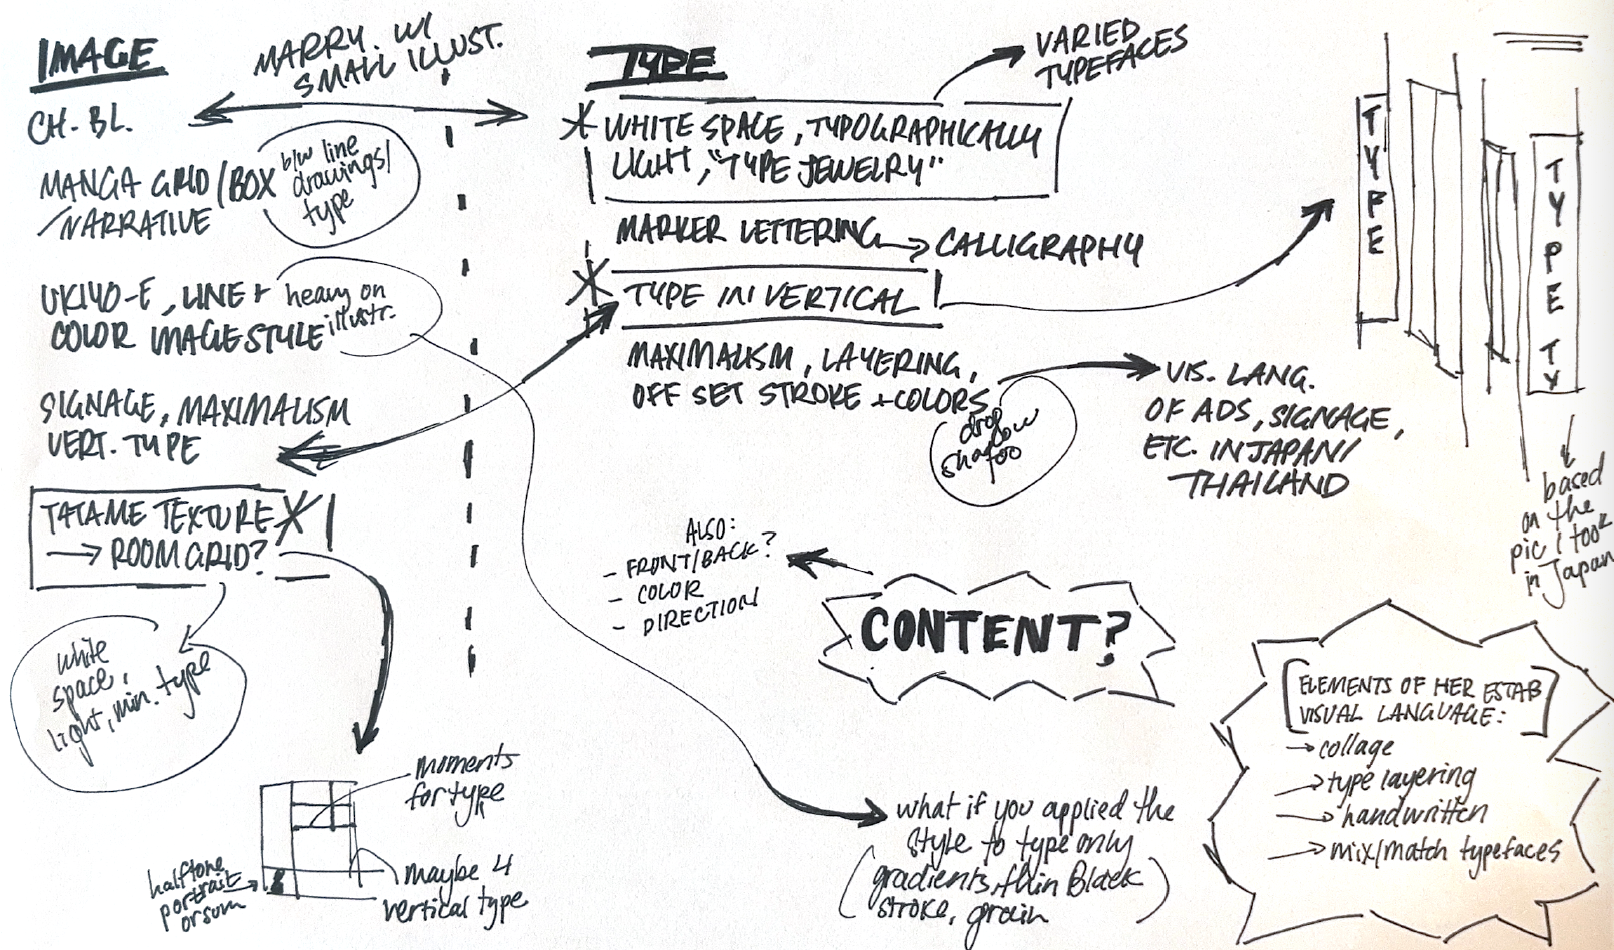 IMAGE
MARRY. W/
SMALL ILLUST.
CH. BL.
MANGA GRID/BOX
/NARRATIVE
b/w line
drawings/
type
UKIYO-E, LINE +
COLOR IMAGE STYLE
heavy on
illustr.
SIGNAGE, MAXIMALISM
VERT. TYPE
TATAME TEXTURE
→ ROOM GRID?
white
space,
light, min. type
moments
for type
maybe 4
vertical type
halftone
portrait
or sum
TYPE
VARIED
TYPEFACES
WHITE SPACE, TYPOGRAPHICALLY
LIGHT, "TYPE JEWELRY"
MARKER LETTERING → CALLIGRAPHY
TYPE IN VERTICAL
MAXIMALISM, LAYERING,
OFF SET STROKE + COLORS
drop
shadow
too
VIS. LANG.
OF ADS, SIGNAGE,
ETC. IN JAPAN/
THAILAND
TYPE
TYPE TY
based
on the
pic I took
in Japan
ALSO:
- FRONT/BACK?
- COLOR
- DIRECTION
CONTENT?
what if you applied the
style to type only
(gradients, thin Black
stroke, grain)
[ELEMENTS OF HER ESTAB
VISUAL LANGUAGE:]
→ collage
→ type layering
→ handwritten
→ mix/match typefaces